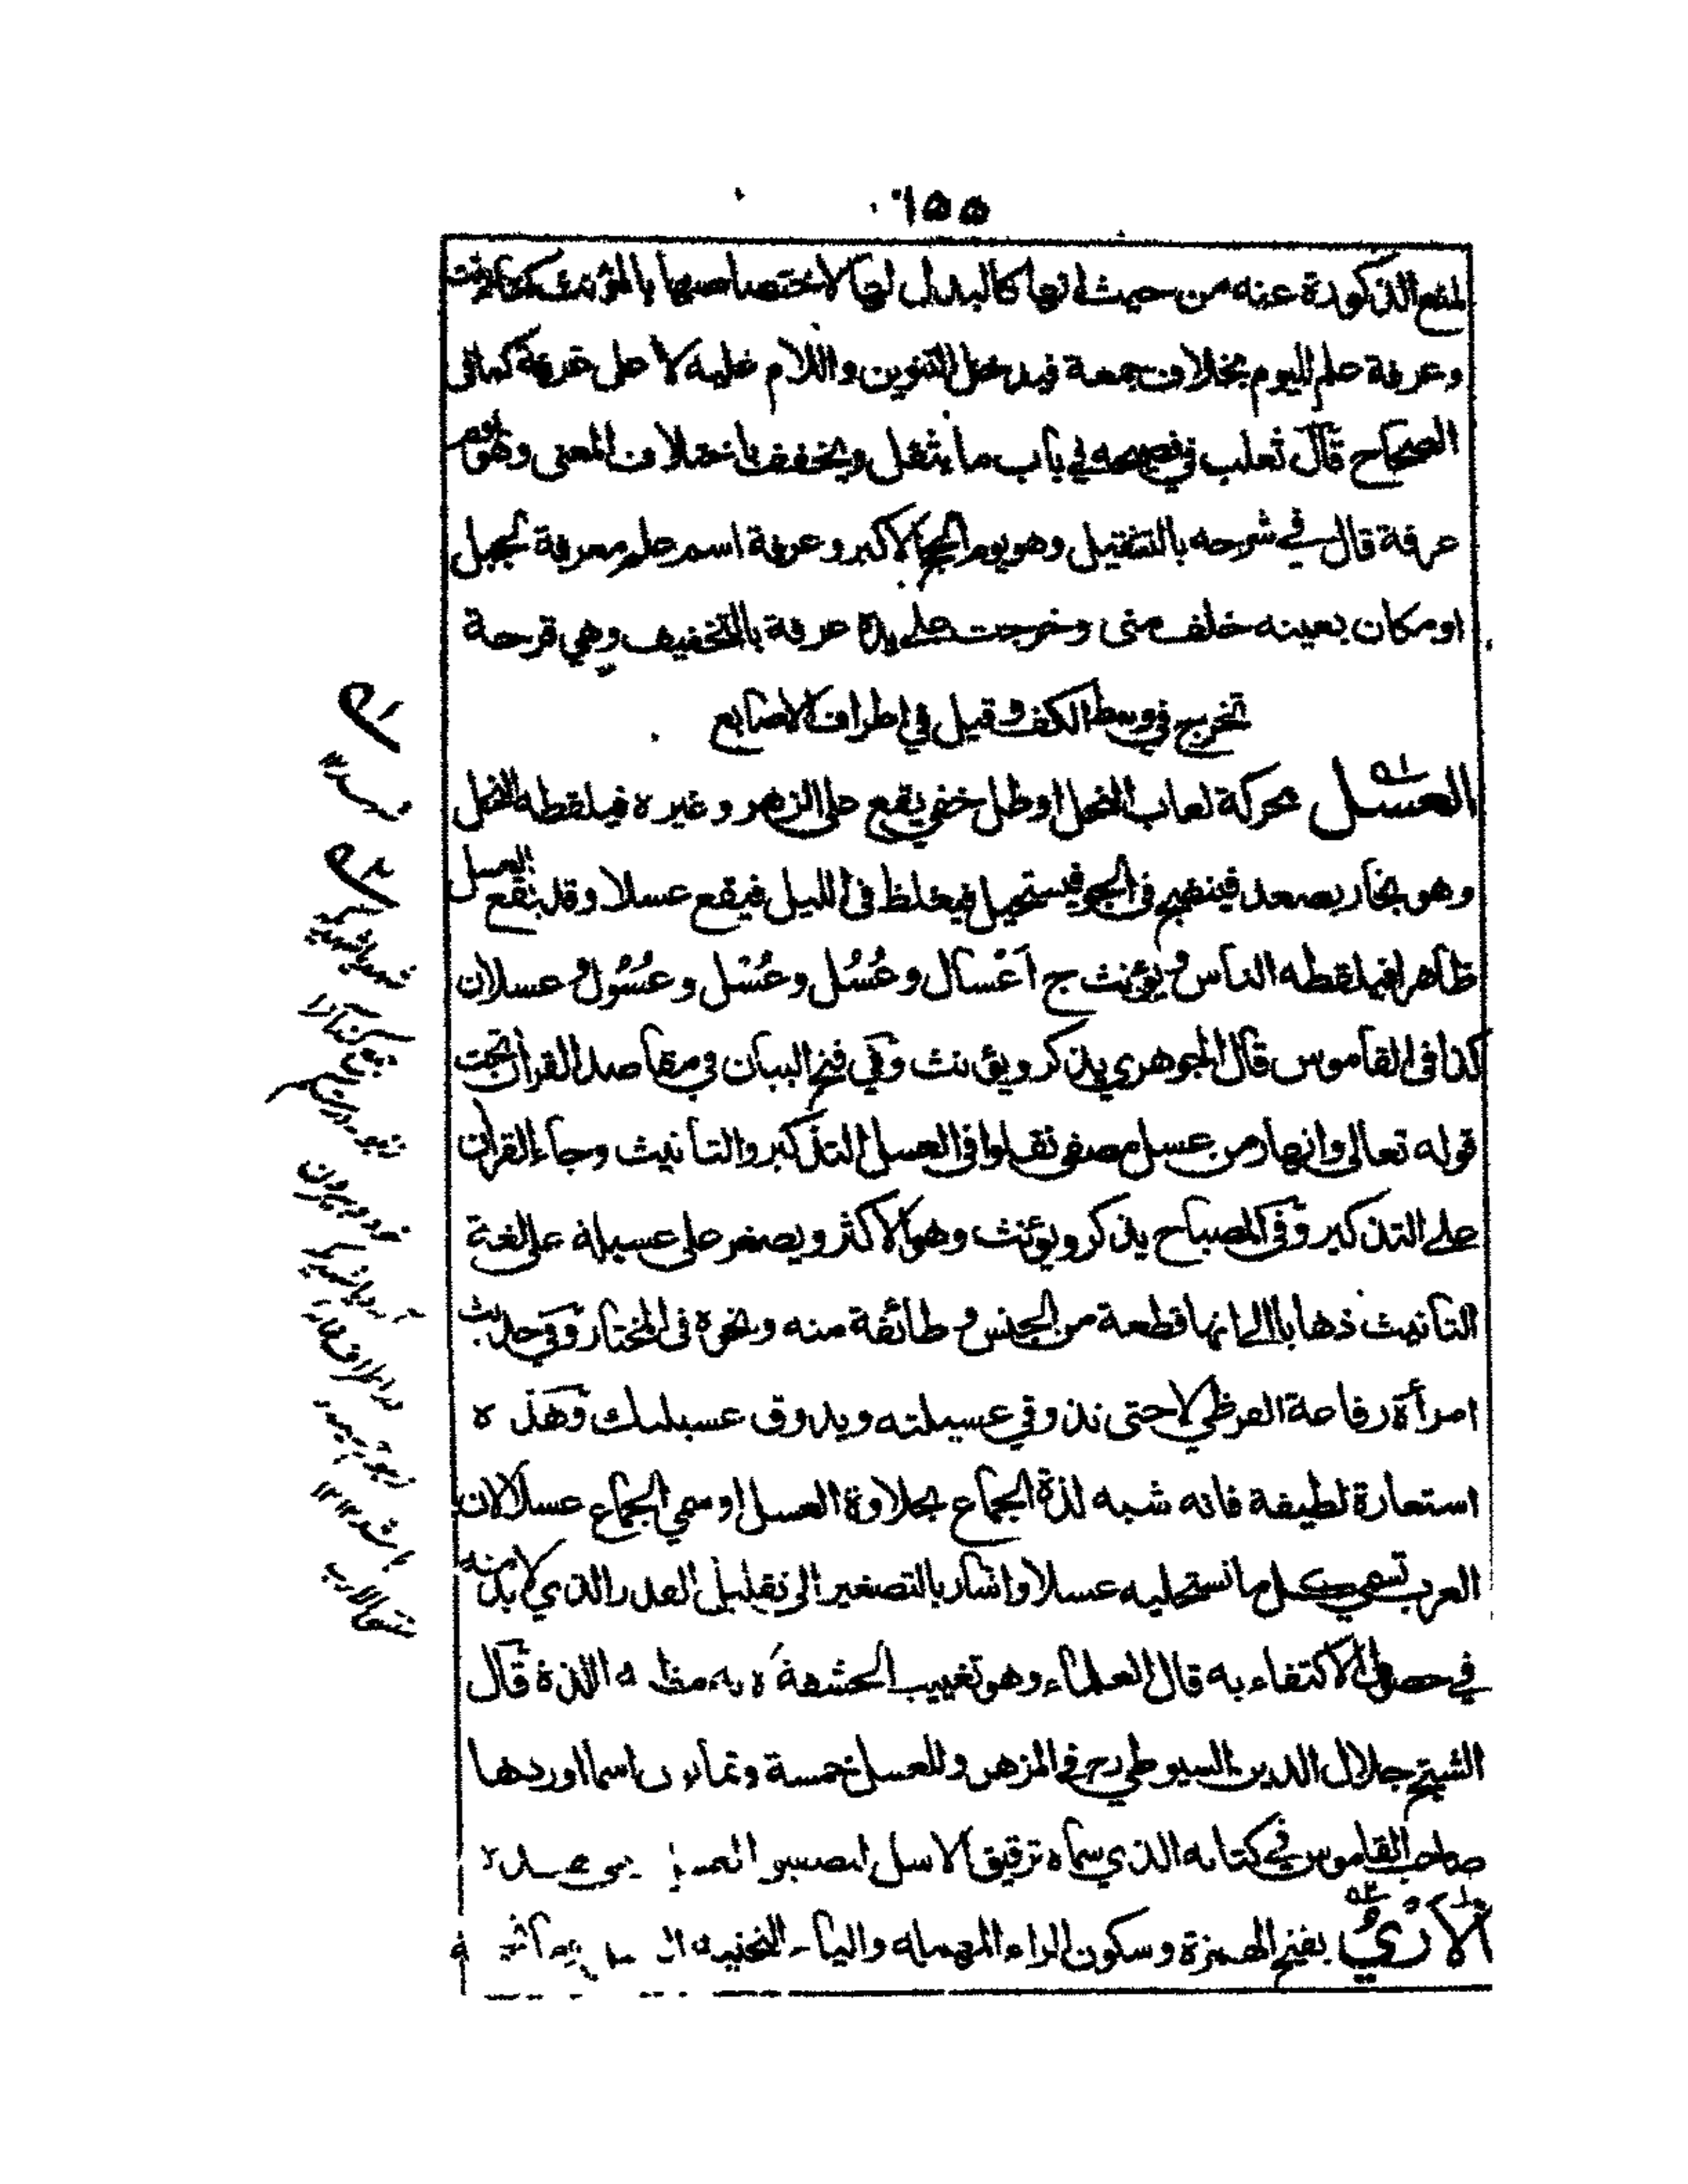 ١٥٥
لمنع الذكورة عنه من حيث انها كالبدل لها لاختصاصها بالمؤنث
وعرفة علم اليوم بخلاف جمعة فيدخل التنوين واللام عليه لا على عرفة كما فى
الصحاح قال ثعلب في فصيحه في باب ما يثقل ويخفف باختلاف المعنى وهو يوم
عرفة قال في شرحه بالتثقيل وهو يوم الحج الاكبر وعرفة اسم علم معرفة لجبل
او مكان بعينه خلف منى وخرجت على يده عرفة بالتخفيف وهي قرحة
تخرج في وسط الكف وقيل في اطراف الاصابع
العسل محركة لعاب النحل او طل خفي يقع على الزهر وغيره فيلقطه النحل
وهو بخار يصعد فينضج فى الجو فيستحيل فيغلظ فى الليل فيقع عسلا وقد يقع العسل
ظاهرا فيلقطه الناس ويؤنث ج اَعْسال وعُسُل وعُسْل وعُسُول وعسلان
كذا فى القاموس قال الجوهري يذكر ويؤنث وفي فتح البيان في مقاصد القرآن تحت
قوله تعالى وانهار من عسل مصفى نقلوا فى العسل التذكير والتانيث وجاء القرآن
على التذكير وفى المصباح يذكر ويؤنث وهو الاكثر ويصغر على عسيلة على لغة
التانيث ذهابا الى انها قطعة من الجنس وطائفة منه ونحوه فى المختار وفي حديث
امرأة رفاعة القرظي لا حتى تذوقي عسيلته ويذوق عسيلتك وهذه
استعارة لطيفة فانه شبه لذة الجماع بحلاوة العسل او سمي الجماع عسلا لان
العرب تسمي كل ما تستحليه عسلا واشار بالتصغير الى تقليل القدر الذي لا بد منه
في حصول الاكتفاء به قال العلماء وهو تغييب الحشفة لانه مظنة اللذة قال
الشيخ جلال الدين السيوطي رح في المزهر وللعسل خمسة وثمانون اسما اوردها
صاحب القاموس في كتابه الذي سماه ترقيق الاسل لتصفيق العسل
الاَرْيُ بفتح الهمزة وسكون الراء المهملة والياء التحتية